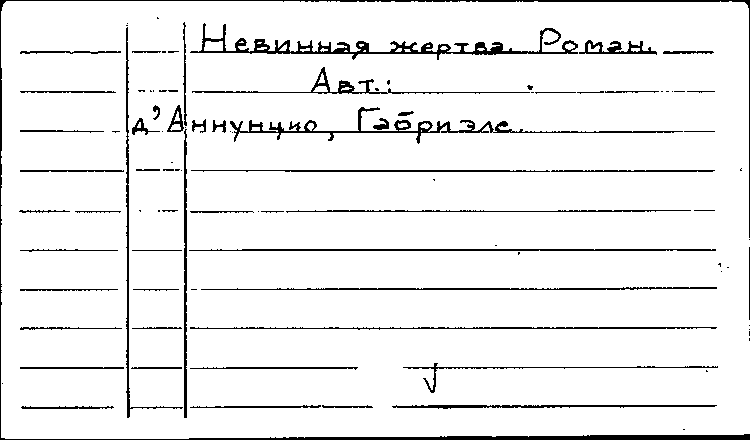 Невинная жертва. Роман.
Авт.:
д'Аннунцио, Габриэле.